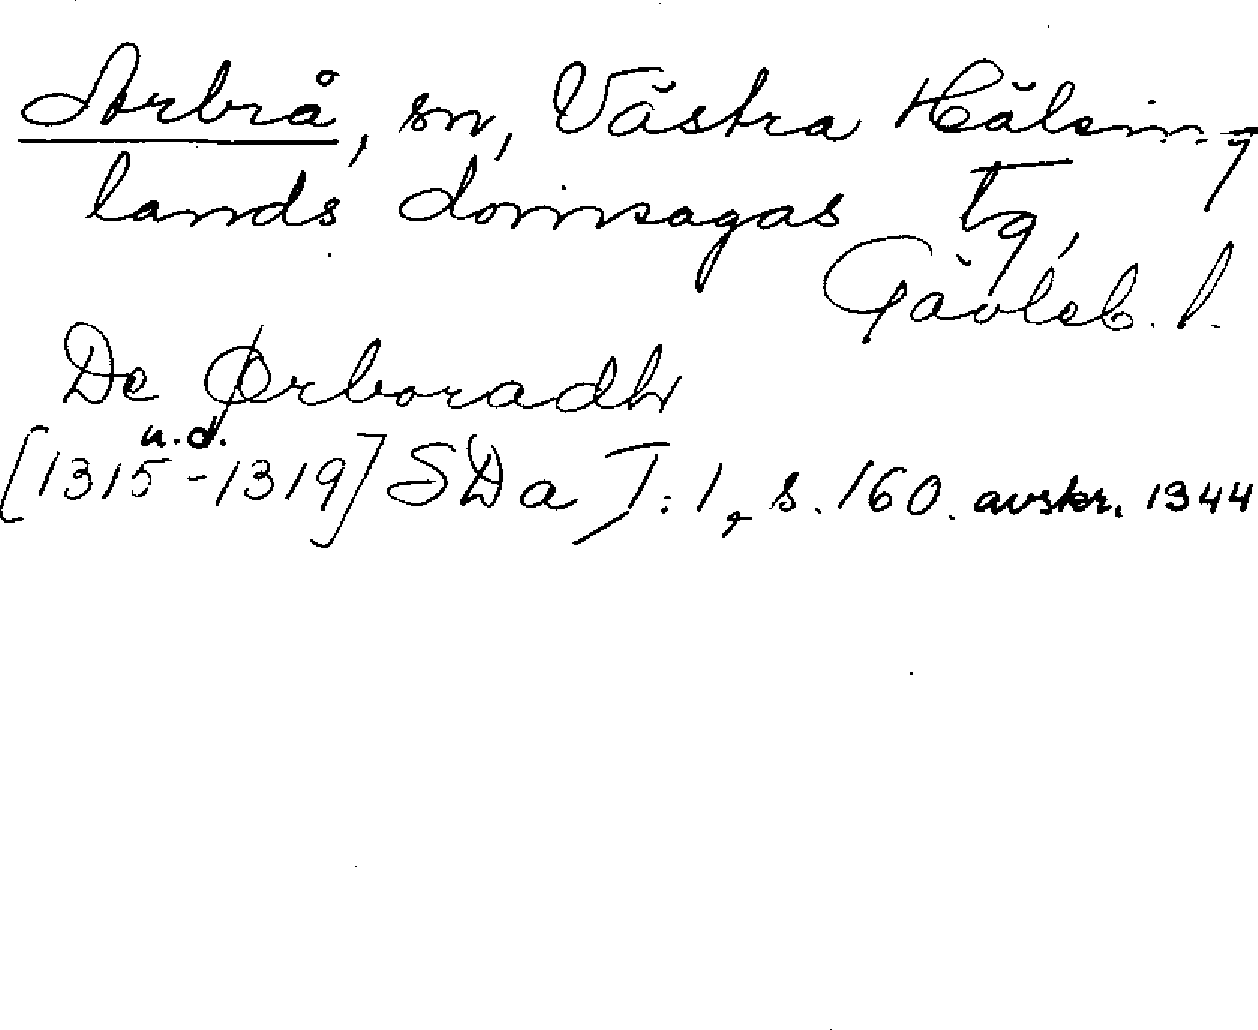 Arbrå, sn, Västra Hälsing-
lands domsagas tg,
Gävleb. l.
De Ørboradh
u.d.
[1315-1319] SDa I:1, s. 160. avskr. 1344